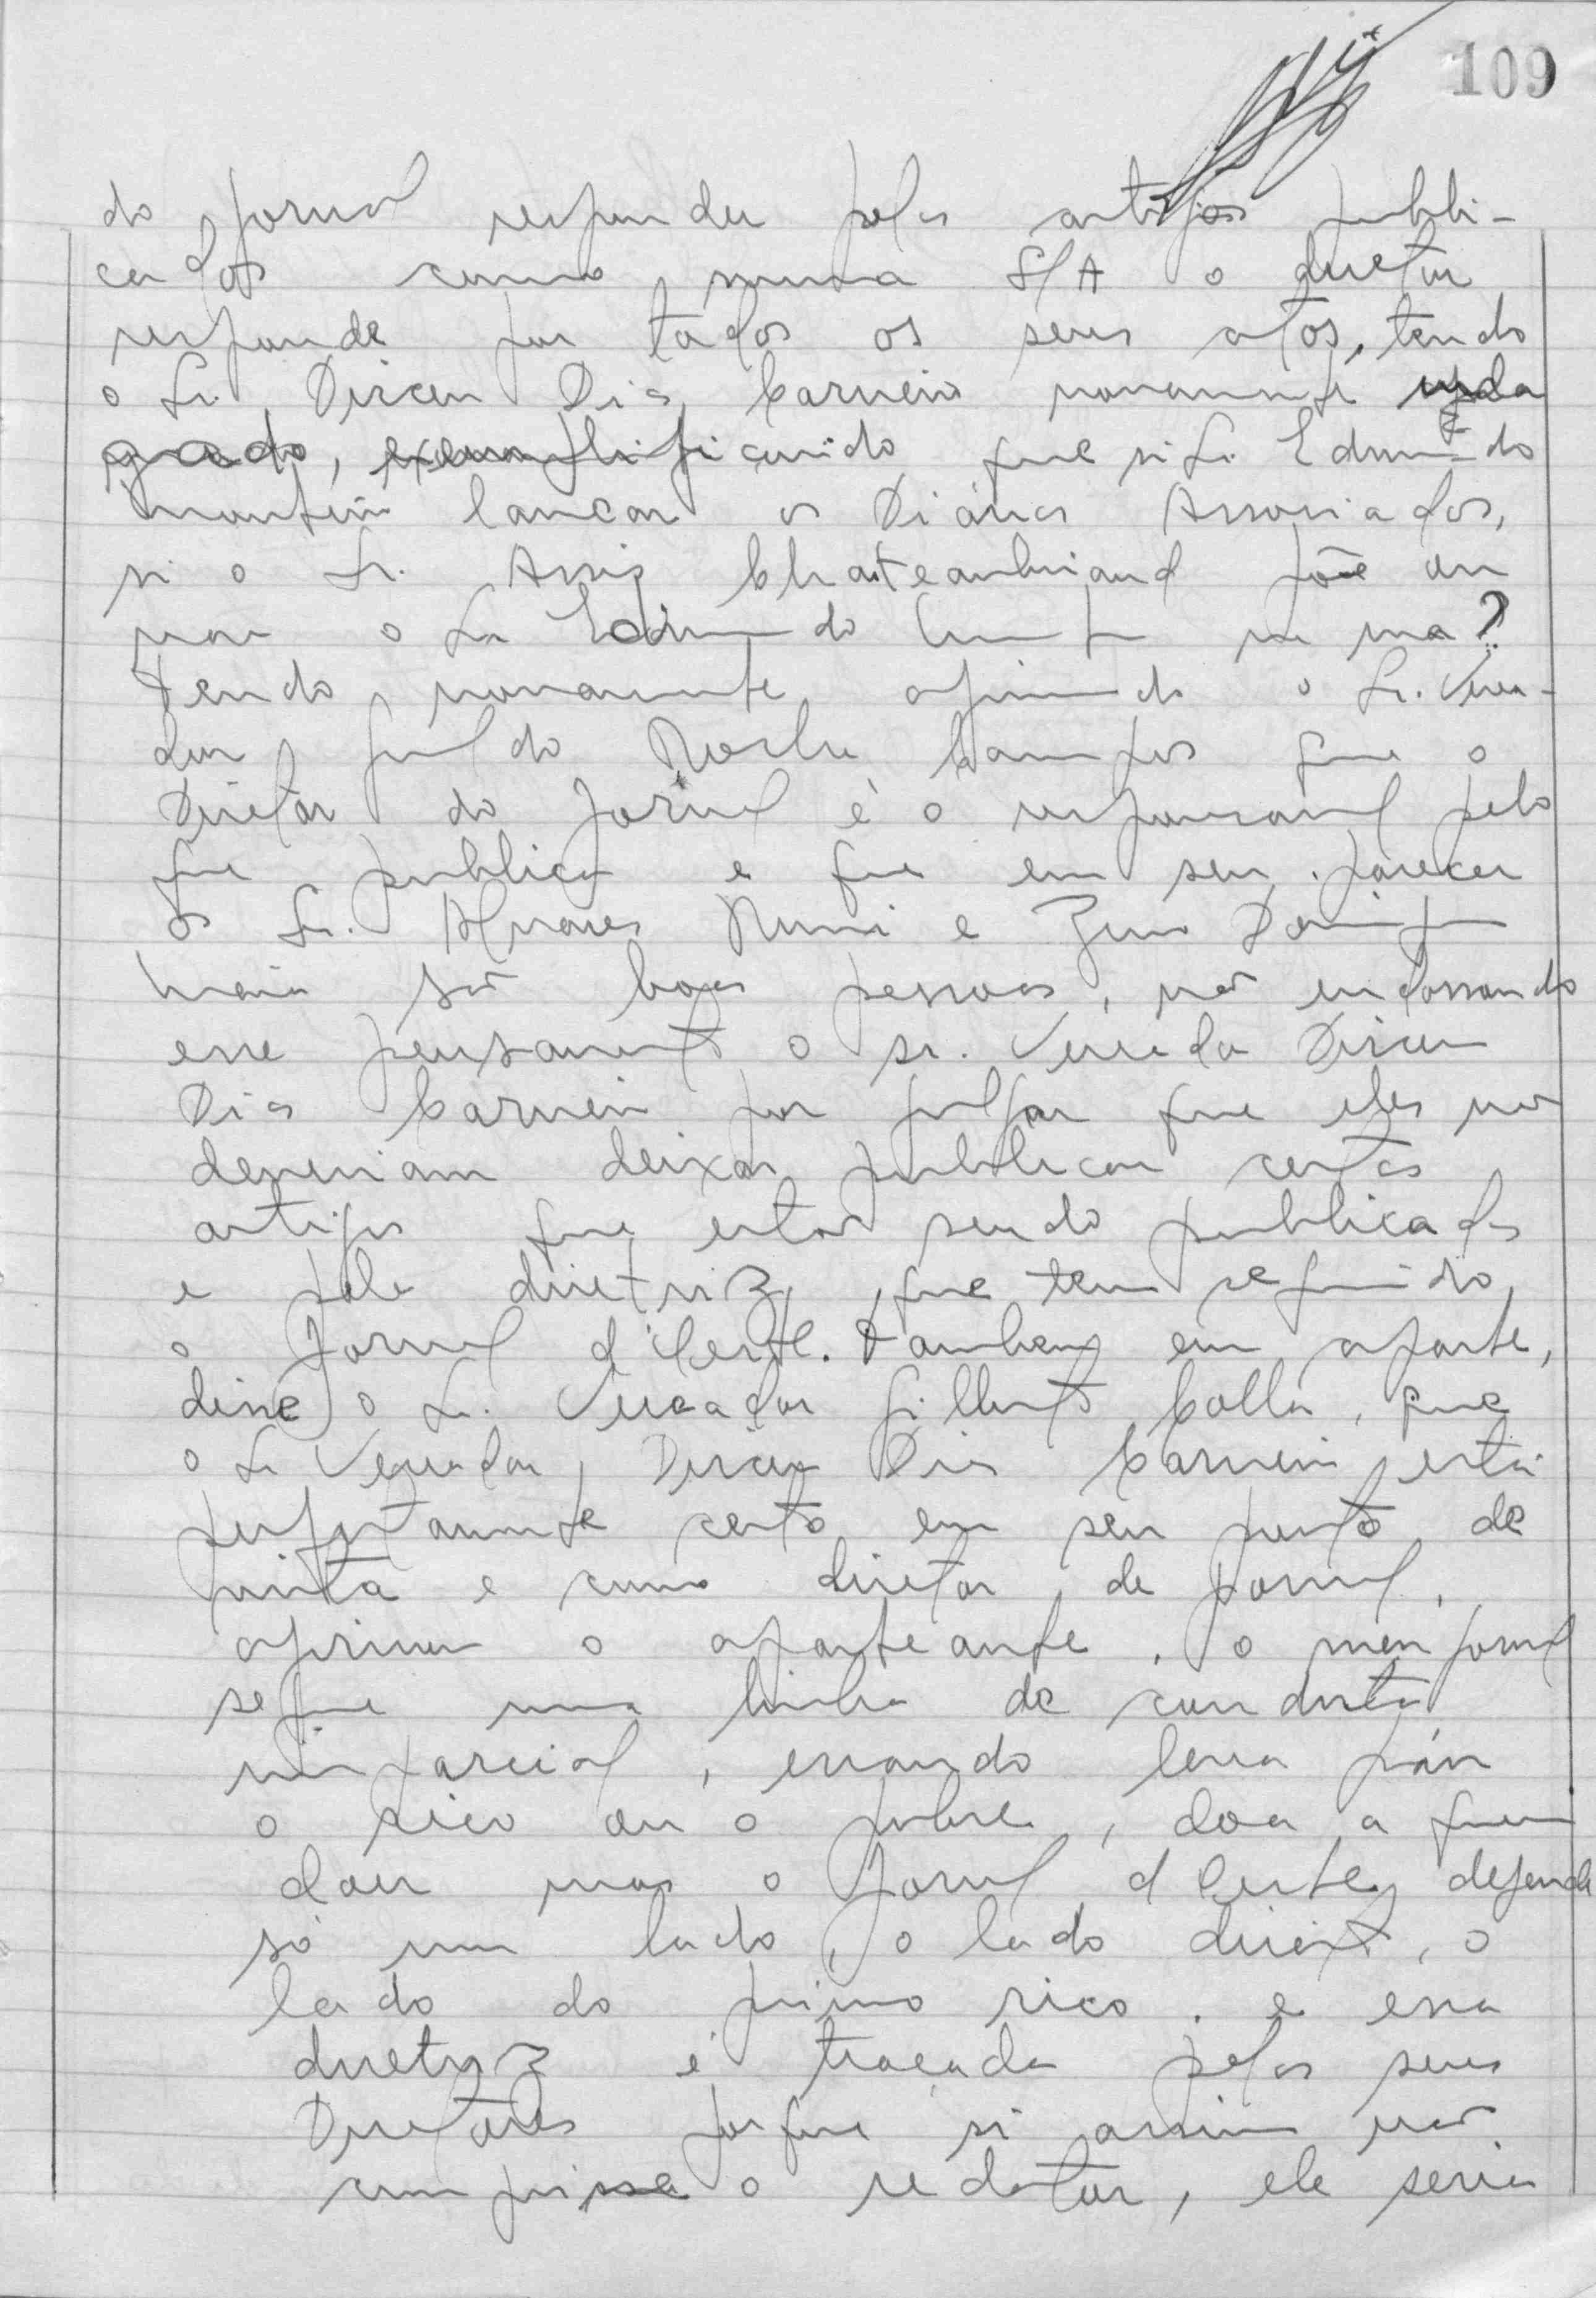 109
do jornal responder pelos artigos publi-
cados como numa S/A o diretor
responde por todos os seus atos, tendo
o Sr. Dirceu Dias Carneiro novamente inda
gado, exemplificando que si Sr. Edmundo
Monteiro lançar os Diários Associados,
si o Sr. Assis Chateaubriand põe ou
não o Sr. Edmundo Monteiro na rua?
Tendo novamente afirmado o Sr. Verea-
dor Geraldo Rocha Campos que o
Diretor do Jornal é o responsável pelo
que publica e que em seu parecer
os Sr. Alvares Nuni e Zeno Domingos
Maia são boas pessoas, não endossando
esse pensamento o sr. Vereador Dirceu
Dias Carneiro por julgar que eles não
deveriam deixar publicar certos
artigos que estão sendo publicados
e pela diretriz que tem seguido
o Jornal d'Oeste. Tambem em aparte,
disse o Sr. Vereador Gilberto Colla, que
o Sr Vereador, Dirceu Dias Carneiro está
perfeitamente certo em seu ponto de
vista e como diretor de jornal,
afirmou o aparteante, o meu jornal
segue uma linha de conduta
imparcial, errando leva páu
o rico ou o pobre, doa a quem
doer mas o Jornal d Oeste, defende
só um lado, o lado direito, o
lado do primo rico. e essa
diretriz é traçada pelos seus
Diretores porque si assim não
cumprisse o redator, ele seria